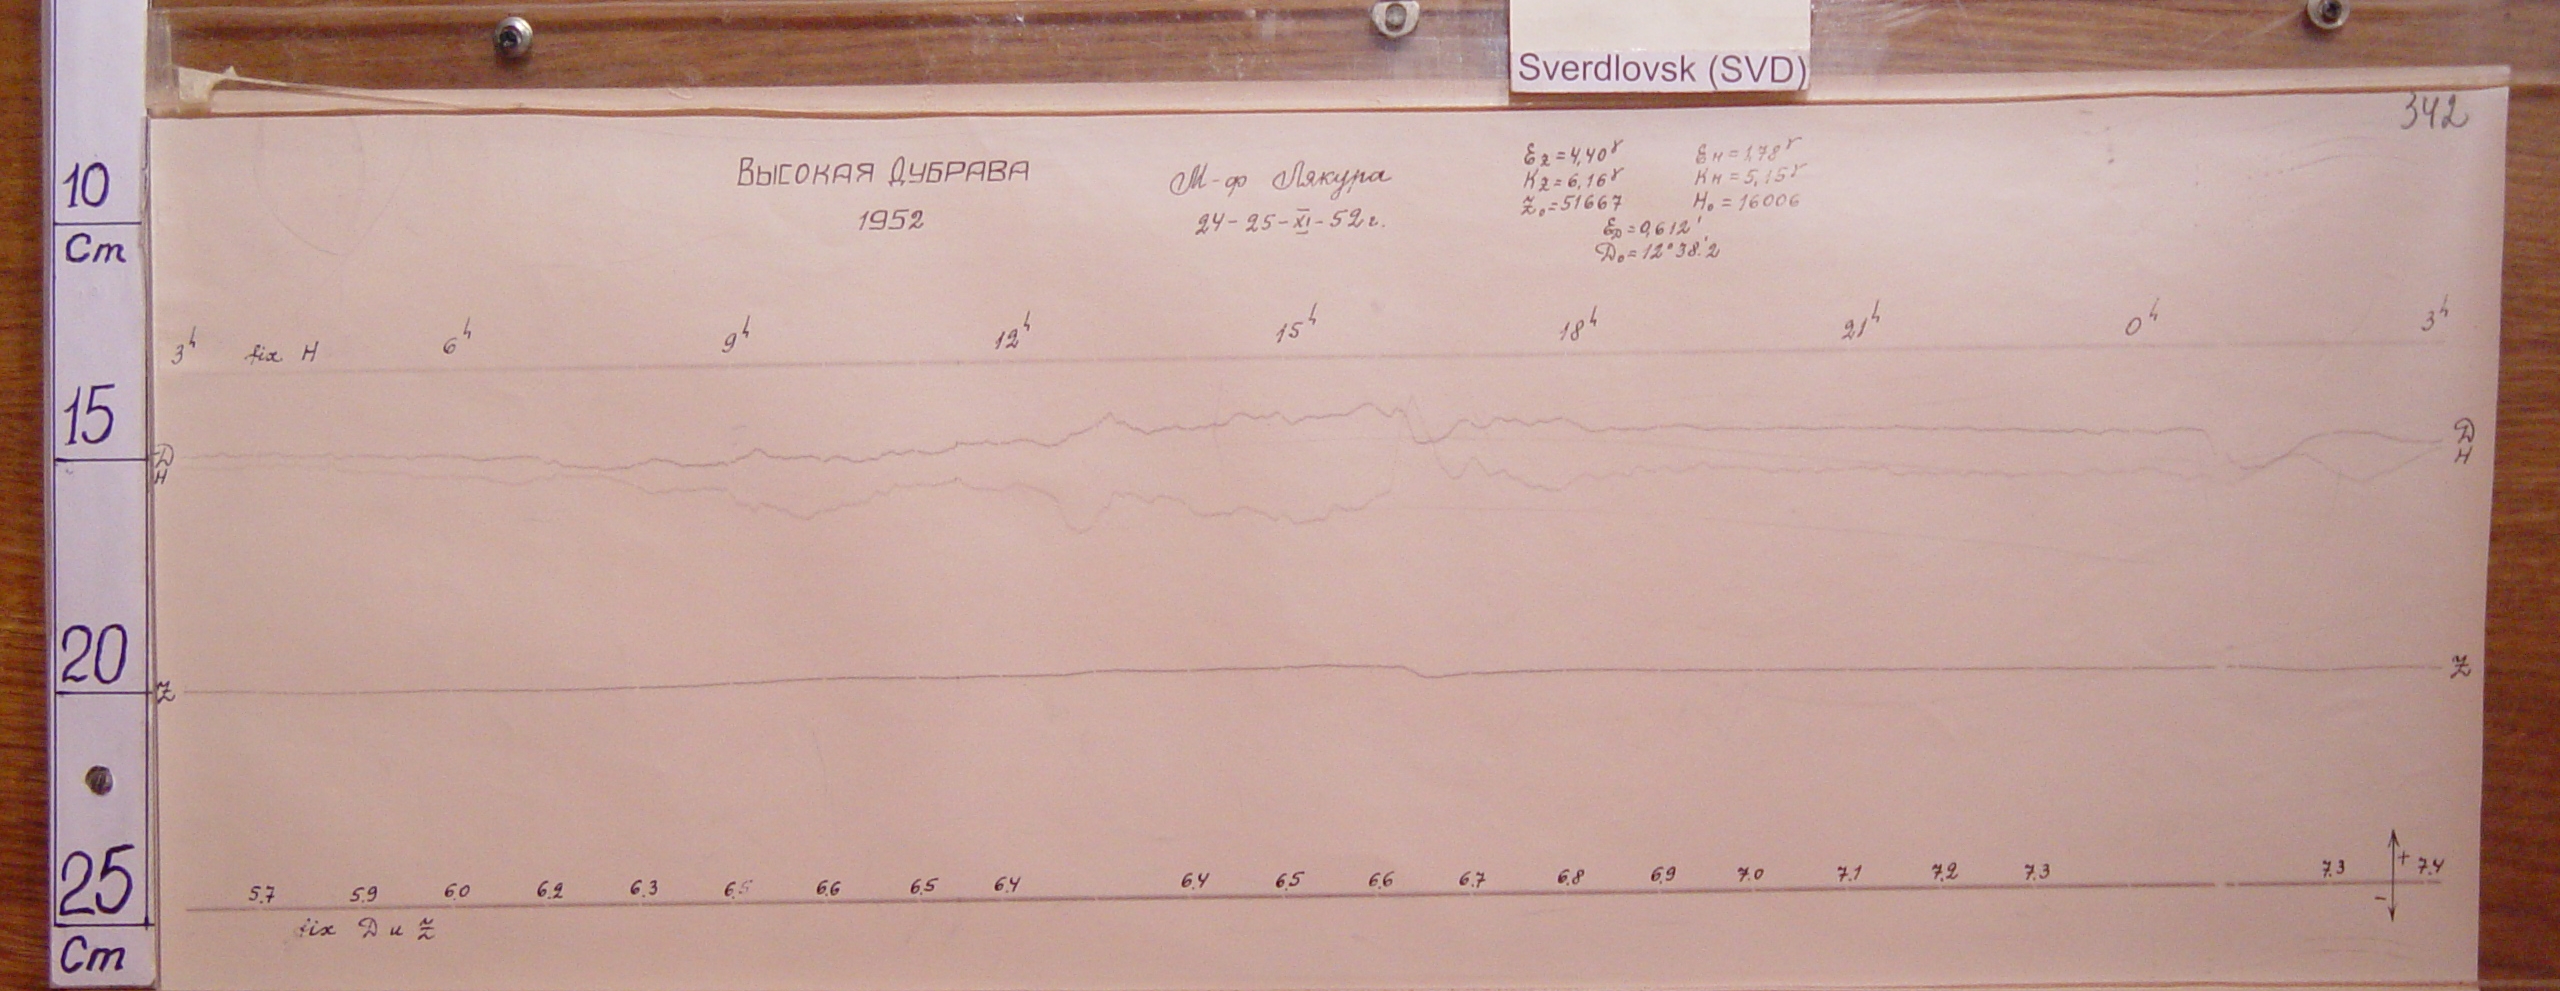 Sverdlovsk (SVD)
342
ВЫСОКАЯ ДУБРАВА
1952
М-ф Лякура
24-25-XI-52 г.
Ez=4,40γ EH=1,78γ
Kz=6,16γ KH=5,15γ
Z₀=51667 H₀=16006
ED=0,612'
D₀=12°38.'2
3h fix H 6h 9h 12h 15h 18h 21h 0h 3h
Д Д
H H
Z Z
5.7 5.9 6.0 6.2 6.3 6.5 6.6 6.5 6.4 6.4 6.5 6.6 6.7 6.8 6.9 7.0 7.1 7.2 7.3 7.3 + 7.4
-
fix Д и Z
10
Cm
15
20
25
Cm